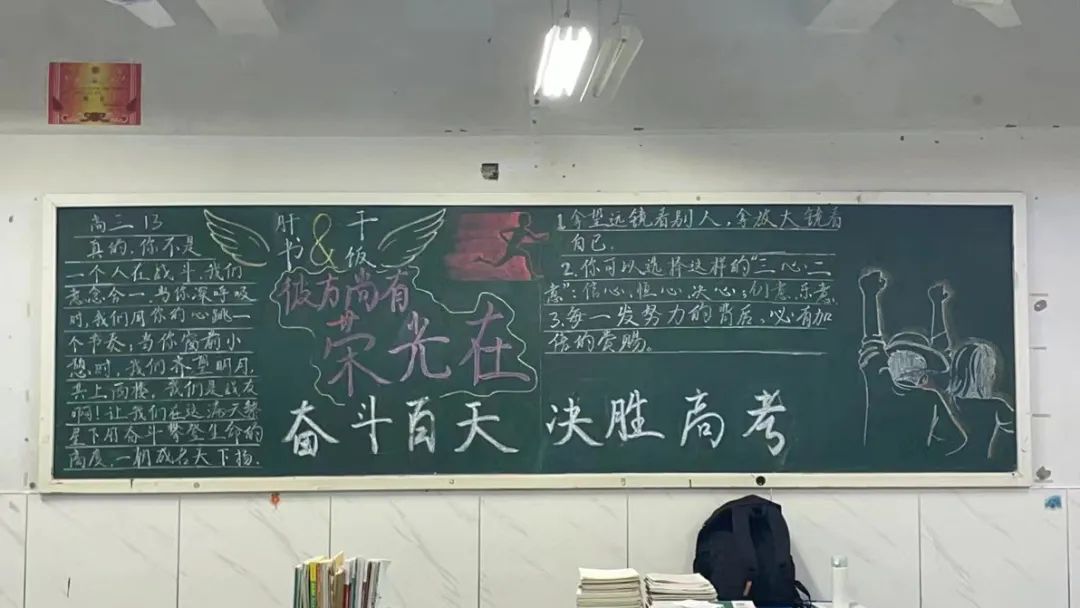 高三 13
真的，你不是
一个人在战斗，我们
意念合一，当你深呼吸
时，我们用你的心跳一
个节奏，当你窗前小
憩时，我们希望明月，
共上西楼，我们是战友
啊！让我们在这满天繁
星下用奋斗攀登生命的
高度，一朝成名天下扬。
肝 & 干
书 饭
彼方尚有
荣光在
奋斗百天 决胜高考
1.拿望远镜看别人，拿放大镜看
自己.
2.你可以选择这样的“三心二
意”：信心，恒心，决心；创意，乐意.
3.每一发努力的背后，必有加
倍的赏赐。